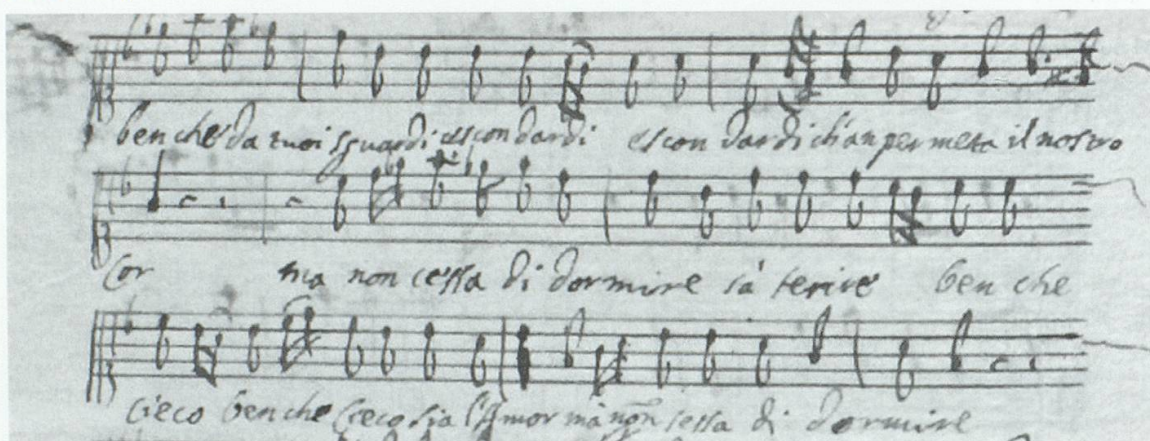 ben che da tuoi sguardi escon dardi escon dardi ch'an per meta il nostro
Cor ma non cessa di dormire sà ferire ben che
Cieco ben che Cieco sia l'Amor mà non cessa di dormire